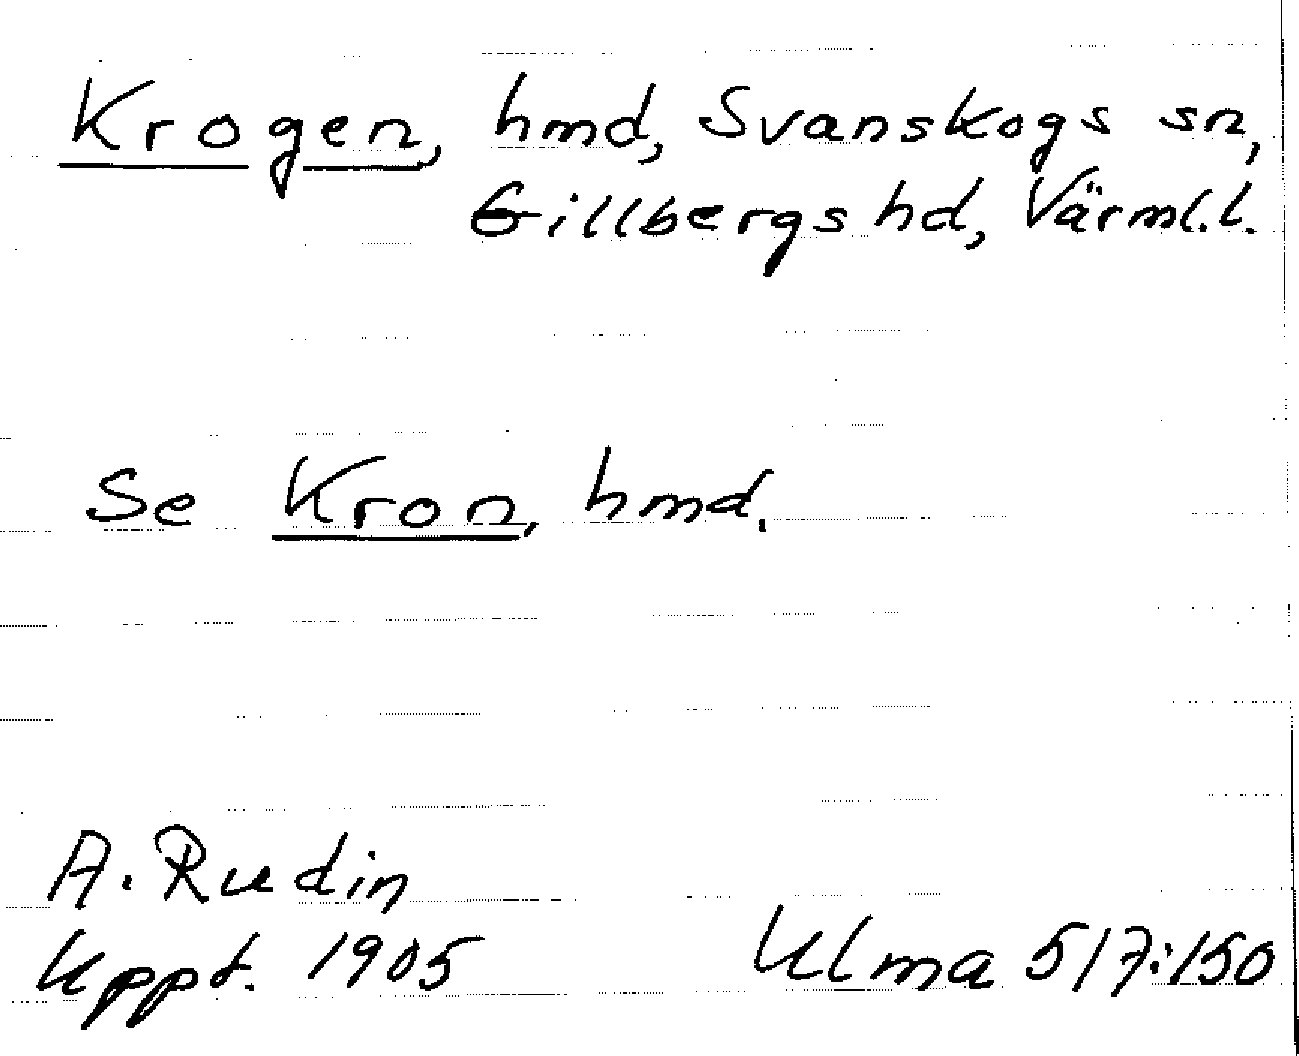 Krogen, hmd, Svanskogs sn,
Gillbergs hd, Värml.l.
Se Kron, hmd.
A. Rudin
Uppt. 1905
Ulma 517:150